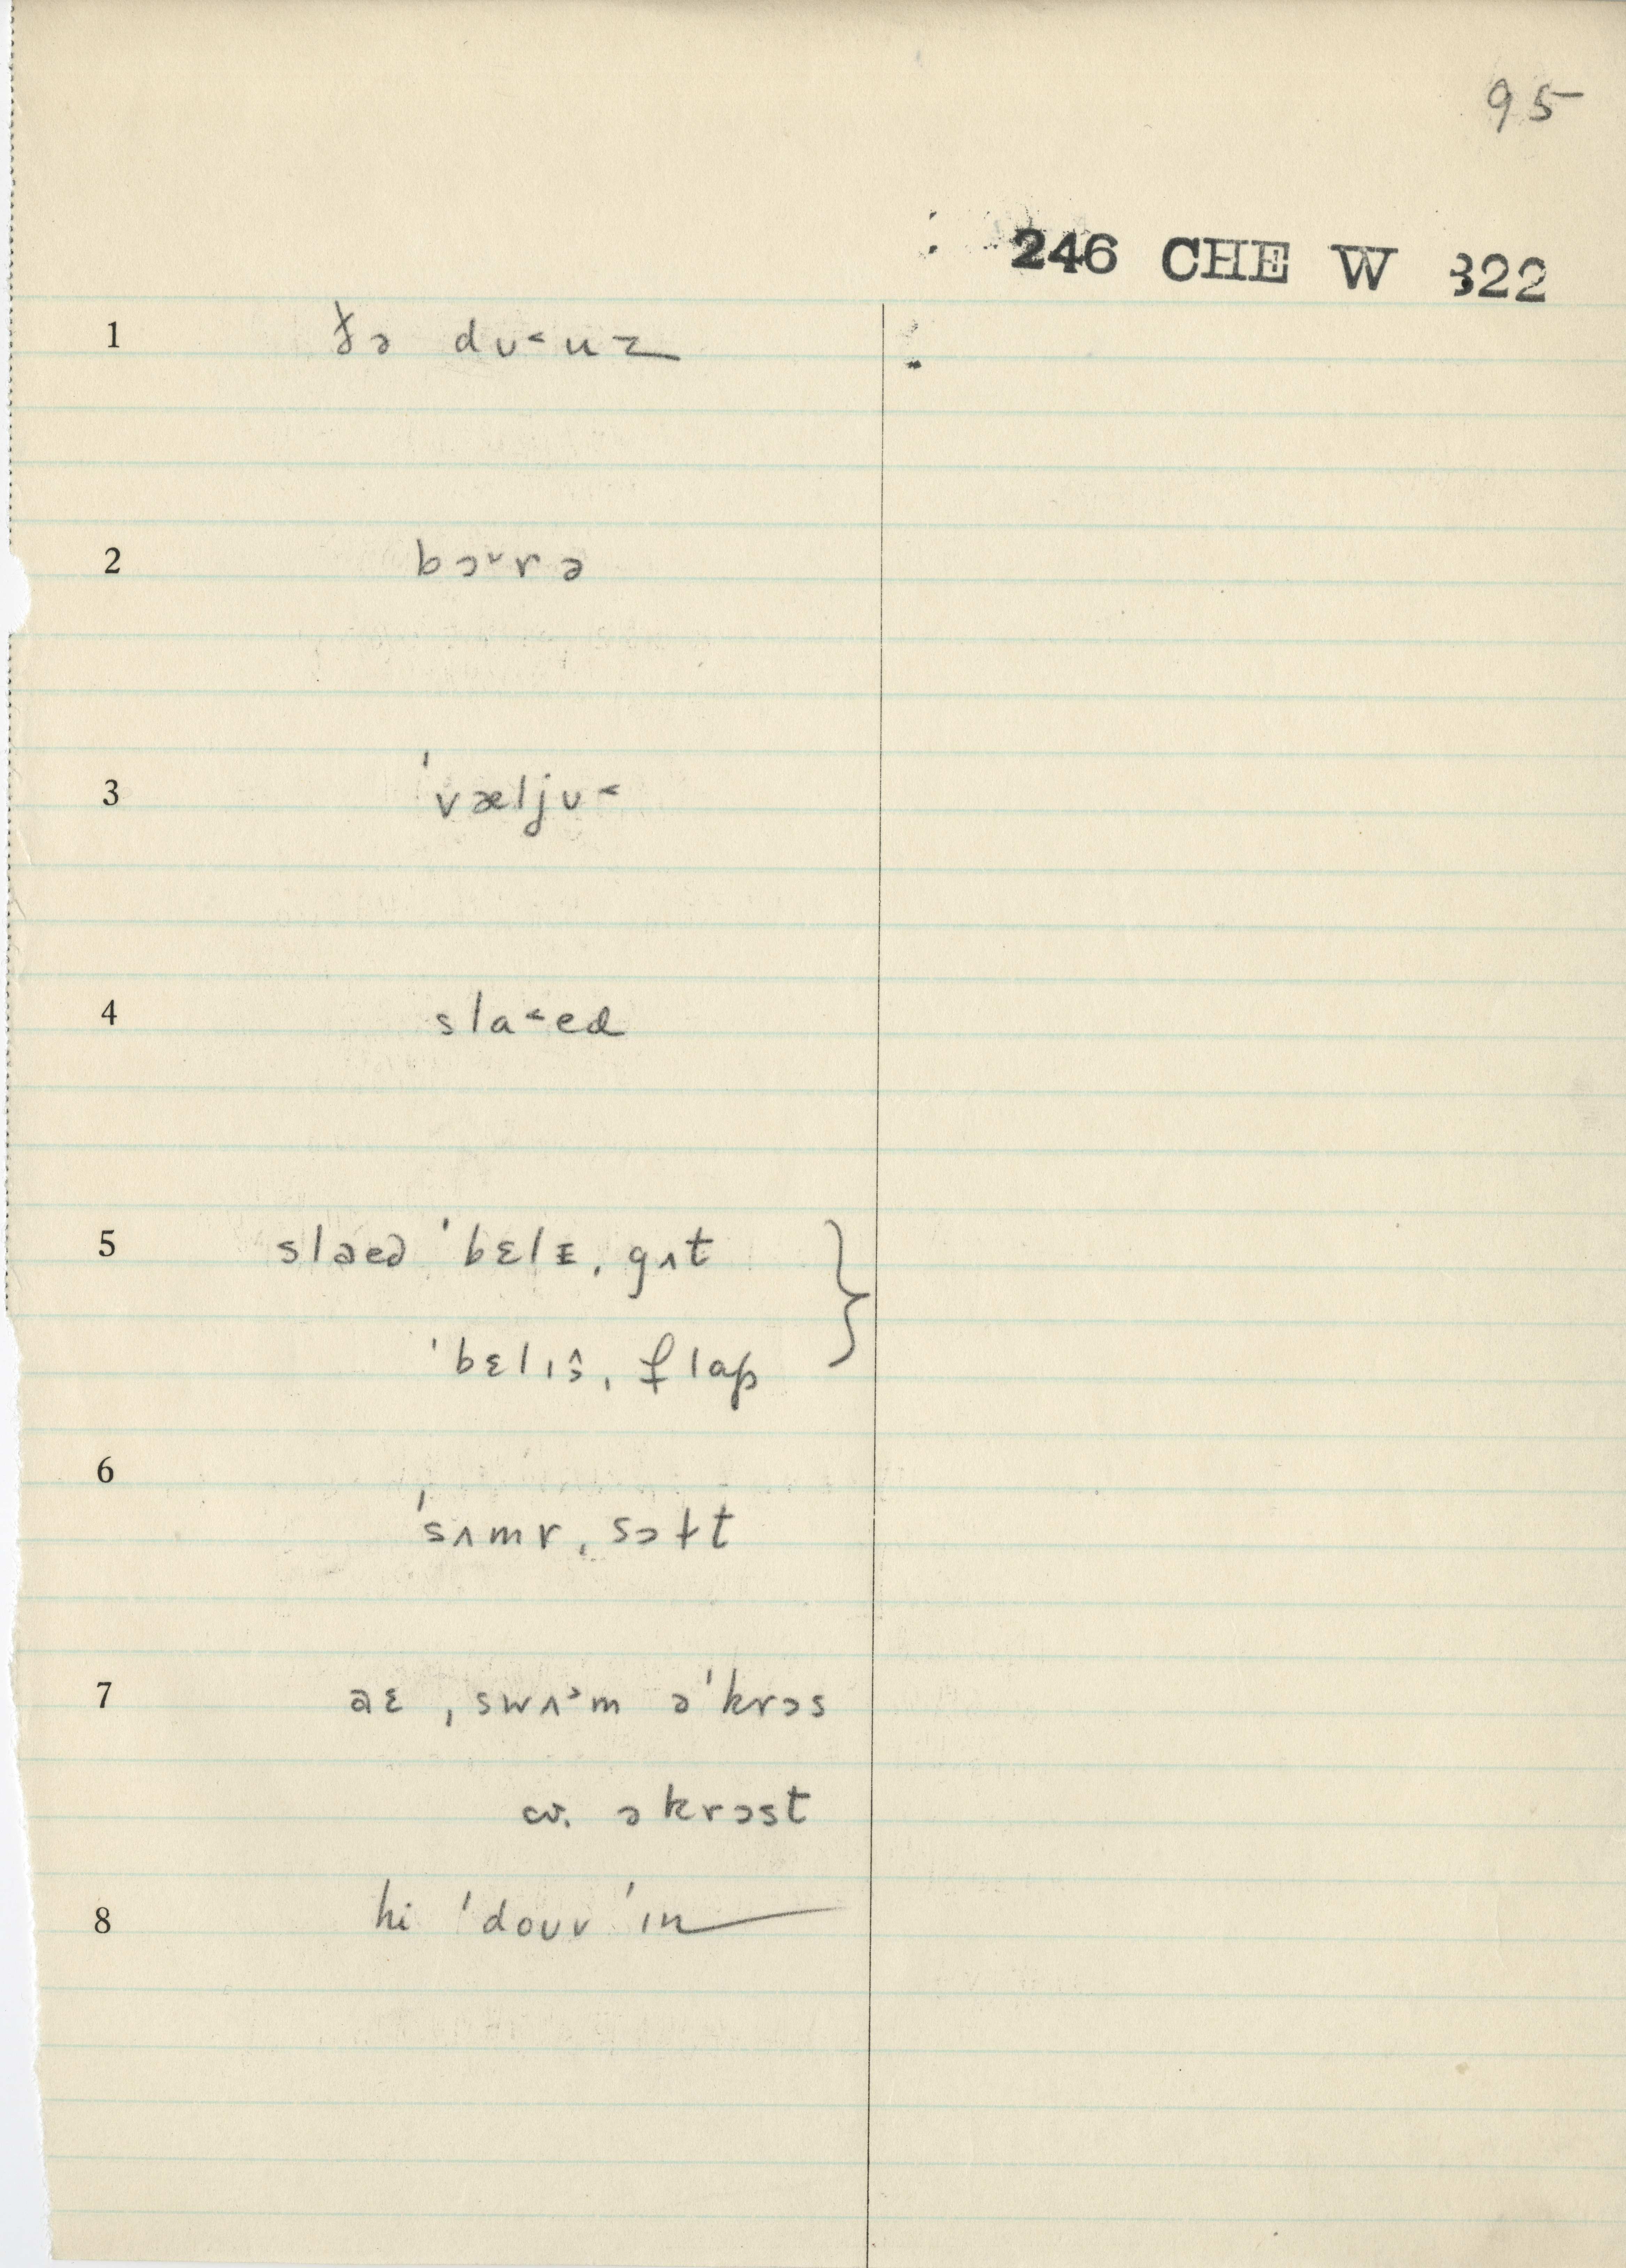 95
246 CHE W 322
1 ðə dʊ˂uz
2 bɔ˅rə
3 ˈvæljʊ˂
4 sla˂ed
5 slaed ˈbɛlɪ, gʌt
ˈbɛlɪs, flap
6
ˈsʌmr, sɔlt
7 aɛ ˌswʌᵊm əˈkrɔs
cv. əkrɔst
8 hi ˈdouv ˈɪn